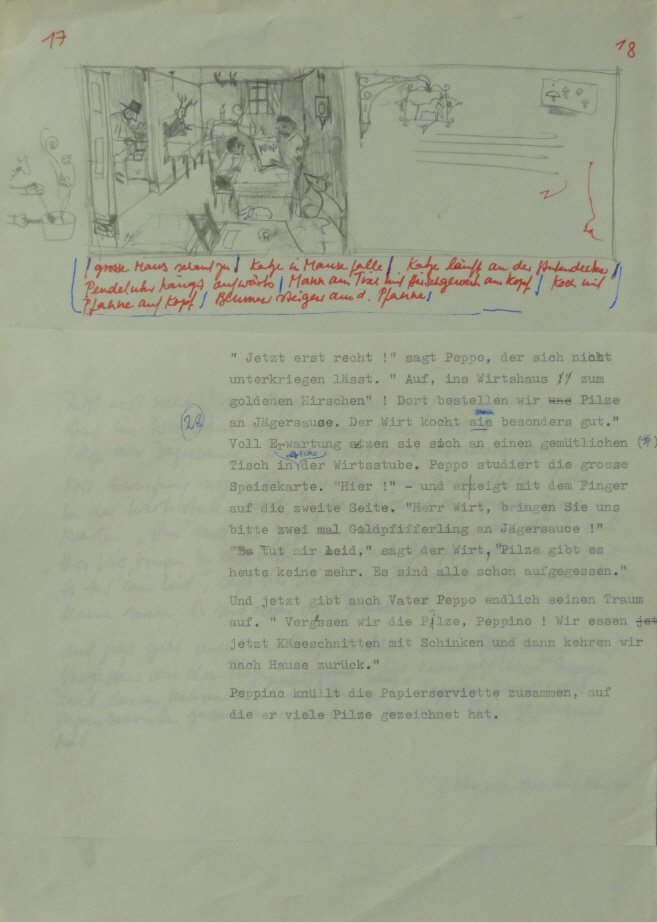 17
18
| grosse Maus schaut zu | Katze in Mausefalle | Katze läuft an der Stubendecke |
Pendeluhr hängt aufwärts | Mann am Tisch mit Hirschgeweih am Kopf | Koch mit
Pfanne auf Kopf | Blumen steigen aus d. Pfanne |
" Jetzt erst recht !" sagt Peppo, der sich nicht
unterkriegen lässt. " Auf, ins Wirtshaus zum
goldenen Hirschen" ! Dort bestellen wir uns Pilze
28
an Jägersause. Der Wirt kocht sie besonders gut."
Voll Erwartung sitzen sie sich an einen gemütlichen (*)
Tisch in der Wirtsstube. Peppo studiert die grosse
Speisekarte. "Hier !" - und er zeigt mit dem Finger
auf die zweite Seite. "Herr Wirt, bringen Sie uns
bitte zwei mal Goldpfifferling an Jägersauce !"
"Es tut mir leid," sagt der Wirt, "Pilze gibt es
heute keine mehr. Es sind alle schon aufgegessen."
Und jetzt gibt auch Vater Peppo endlich seinen Traum
auf. " Vergessen wir die Pilze, Peppino ! Wir essen jet
jetzt Käseschnitten mit Schinken und dann kehren wir
nach Hause zurück."
Peppino knüllt die Papierserviette zusammen, auf
die er viele Pilze gezeichnet hat.